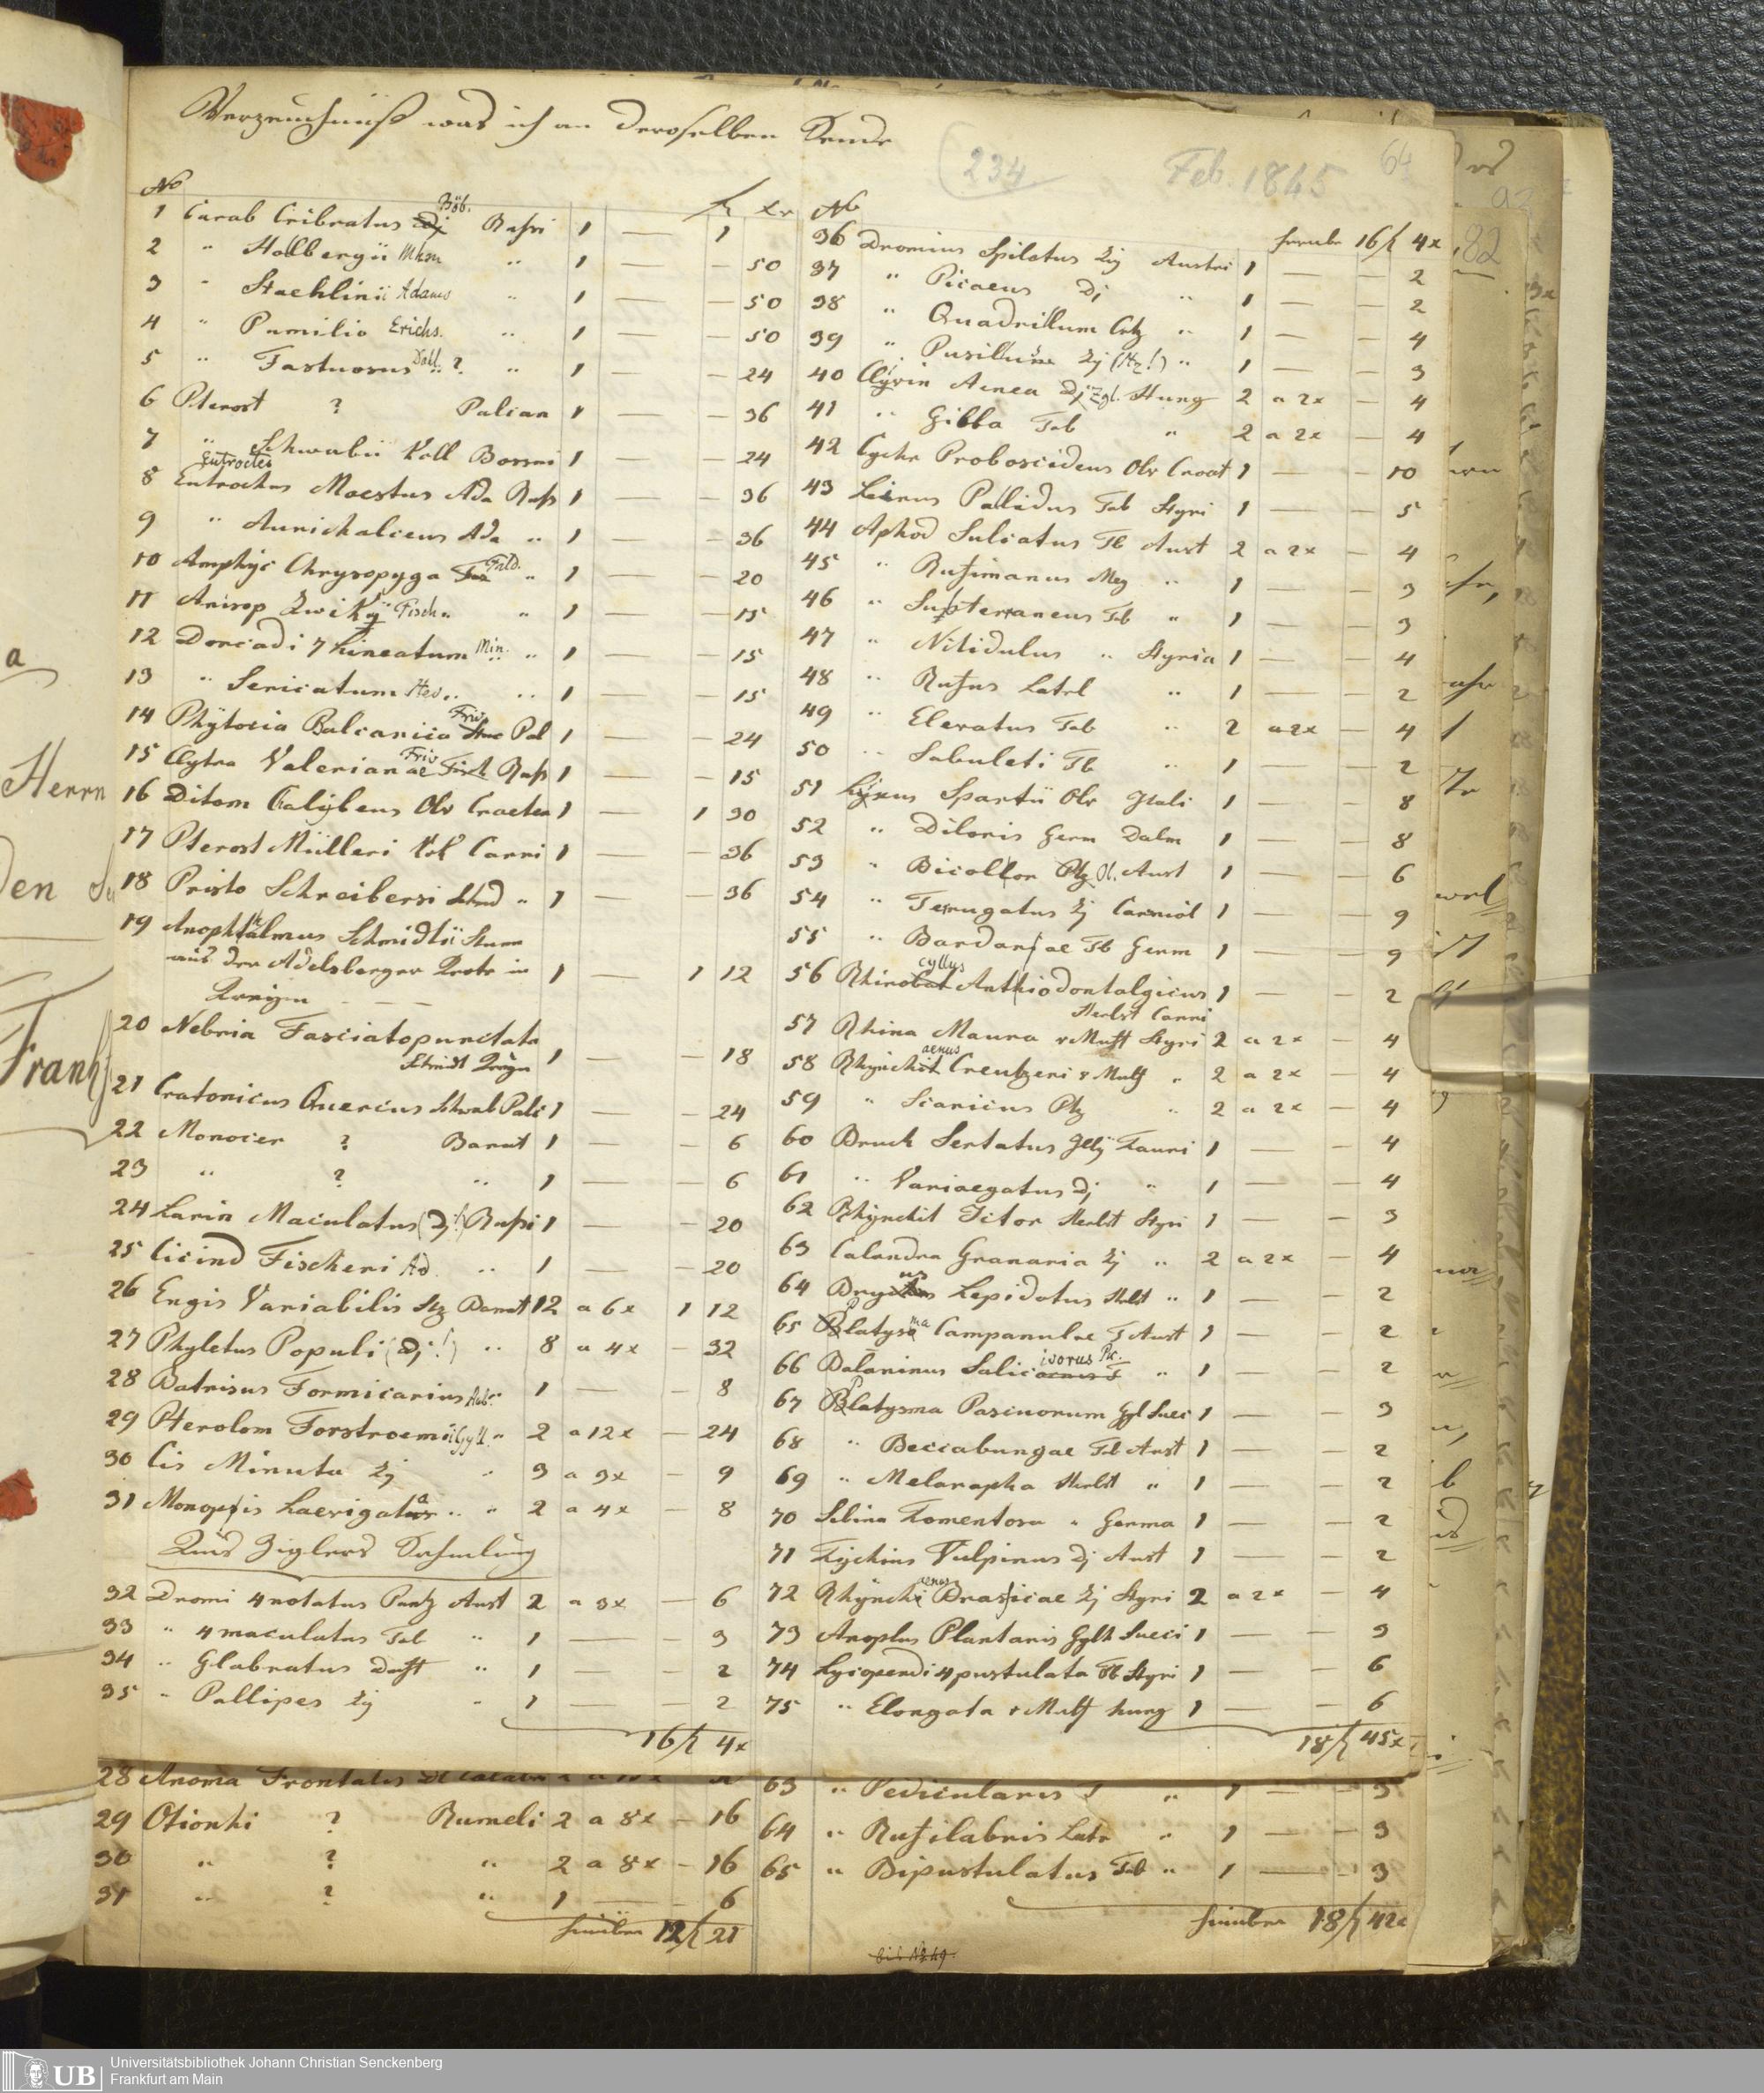 Verzeichniß was ich an deroselben Sende
234
Feb. 1845
64
No fl xr
1 Carab Cribratus Böb. Rußi 1 — 1
2 " Hollbergii Mhm " 1 — — 50
3 " Staehlinii Adams " 1 — — 50
4 " Pumilio Erichs. " 1 — — 50
5 " Fastuosus Dall. ? " 1 — — 24
6 Pterost ? Balcan 1 — — 36
7 " Schwabii Koll Bossni 1 — — 24
Eutroctes
8 Eutrochus Moestus Ada Ruß 1 — — 36
9 " Aurichalceus Ada " 1 — — 36
10 Amphyc Chrysopyga Fald. " 1 — — 20
11 Anisop Zwikÿ Fisch. " 1 — — 15
12 Dorcadi 7 Lineatum Min. " 1 — — 15
13 " Sericatum Stev. " 1 — — 15
14 Phÿtocia Balcanica Friv Bal 1 — — 24
15 Clytra Valerianae Friv Ruß 1 — — 15
16 Ditom Calÿbeus Olv Croatia 1 — 1 30
17 Pterost Mülleri Kol Carni 1 — — 36
18 Pristo Schreibersi Schmd " 1 — — 36
19 Anophthalmus Schmidtii Sturm
aus der Adelsberger Grotte in 1 — 1 12
Krayn — —
20 Nebria Fasciatopunctata
Schmidt Krayn 1 — — 18
21 Cratonicus Quercus Schwab Bali 1 — — 24
22 Monocer ? Banat 1 — — 6
23 " ? " 1 — — 6
24 Larin Maculatus (Dj!) Rußi 1 — — 20
25 Cicind Fischeri Ad. " 1 — — 20
26 Engis Variabilis Stz Banat 12 a 6x 1 12
27 Phyletus Populi (Dj!) " 8 a 4x — 32
28 Batrisus Formicarius Aub. " 1 — — 8
29 Pterolom Forstroemii Gyll. " 2 a 12x — 24
30 Cis Minuta Zj " 3 a 3x — 9
31 Monopsis Laevigata " " 2 a 4x — 8
Aus Ziglers Sammlung
32 Dromi 4 notatus Pantz Aust 2 a 3x — 6
33 " 4 maculatus Fab " 1 — — 3
34 " Glabratus Duft " 1 — — 2
35 " Pallipes Zj " 1 — — 2
16 fl 4x
No
16 fl 4x
36 Dromius Spilotus Zij Austri 1 — — 2
37 " Piceus Dj " 1 — — 2
38 " Quadrillum Crtz " 1 — — 4
39 " Pusillus Zj (Stz!) " 1 — — 3
40 Clÿvin Aenea Dj Zgl. Hung 2 a 2x — 4
41 " Gibba Fab " 2 a 2x — 4
42 Cychr Proboscideus Olv Croat 1 — — 10
43 Leirus Pallidus Fab Styri 1 — — 5
44 Aphod Sulcatus Fb Aust 2 a 2x — 4
45 " Rufimanus Meg " 1 — — 3
46 " Subterraneus Fab " 1 — — 3
47 " Nitidulus " Styria 1 — — 4
48 " Rufus Latrl " 1 — — 2
49 " Elevatus Fab " 2 a 2x — 4
50 " Sabuleti Fb " 1 — — 2
51 Lÿxus Spartii Olv Itali 1 — — 8
52 " Diloris Germ Dalm 1 — — 8
53 " Bicollor Ol. Aust 1 — — 6
54 " Ferrugatus Zj Carniol 1 — — 9
55 " Bardanae Fb Germ 1 — — 9
56 Rhinocyllus Antiodontalgicus 1 — — 2
Herbst Carni
57 Rhina Maura v Muhf Styri 2 a 2x — 4
58 Rhÿnchaenus Creutzeri v Muhf " 2 a 2x — 4
59 " Scanicus Ptz " 2 a 2x — 4
60 Bruch Sertatus Illÿ Tauri 1 — — 4
61 " Variaegatus Dj " 1 — — 4
62 Rhÿnchit Ictor Herbst Styri 1 — — 3
63 Calandra Granaria Zj " 2 a 2x — 4
64 Dryus Lepidotus Herbst " 1 — — 2
65 Platysma Campanulae F Aust 1 — — 2
66 Balaninus Salicivorus Pk. " 1 — — 2
67 Platysma Pascuorum Gyl Sueci 1 — — 3
68 " Beccabungae Fb Aust 1 — — 2
69 " Melarapha Herbst " 1 — — 2
70 Sibina Tomentosa " Germa 1 — — 2
71 Tÿchius Vulpinus Dj Aust 1 — — 2
72 Rhÿnchaenus Brassicae Zj Styri 2 a 2x — 4
73 Anoplus Plantaris Gylh Sueci 1 — — 3
74 Lycoperdi 4 pustulata Fb Styri 1 — — 6
75 " Elongata v Muhf hung 1 — — 6
18 fl 45x
28 Anoma Frontalis
29 Otiorhi ? Rumeli 2 a 8x — 16
30 " ? " 2 a 8x — 16
31 " ? " 1 — 6
12 fl 21
63 " Pedicularis F " 1 — — 3
64 " Rufilabris Latr " 1 — — 3
65 " Bipustulatus Fab " 1 — — 3
18 fl 42x
bis No 49.
82
a
Herrn
den
Frank
UB Universitätsbibliothek Johann Christian Senckenberg
Frankfurt am Main